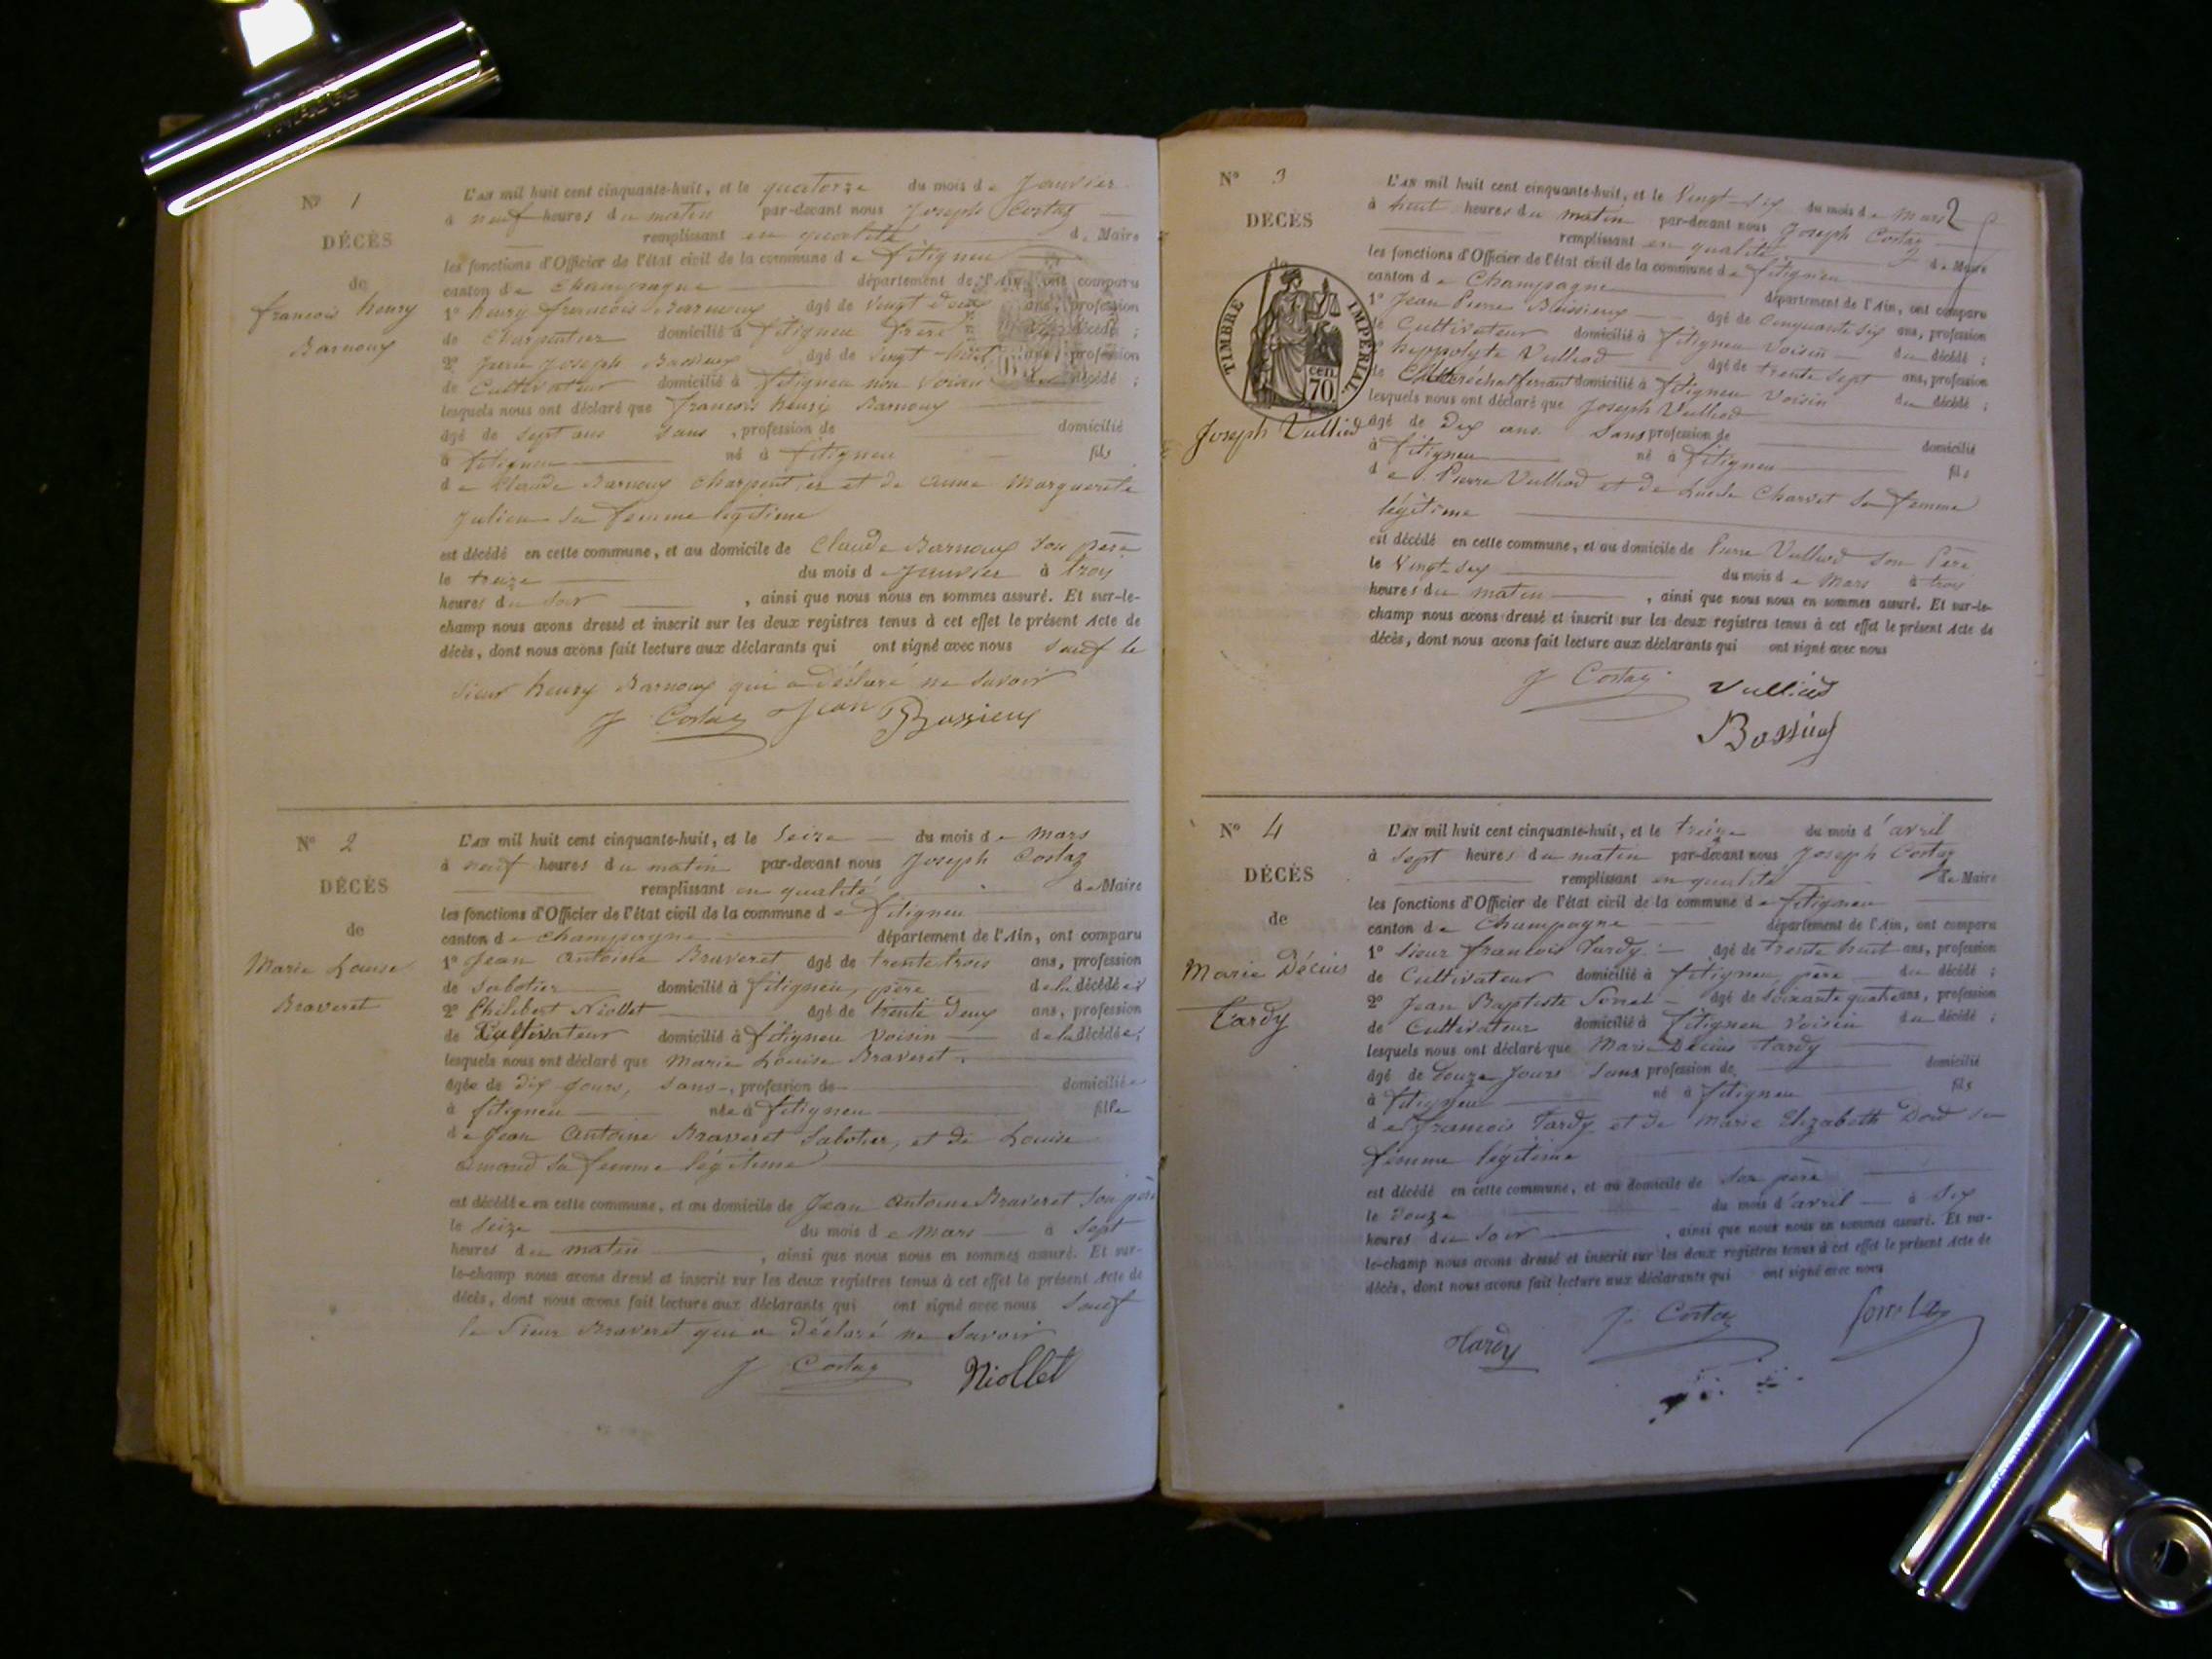 N° 1
DÉCÈS
de
francois henry
Barnoux
L'AN mil huit cent cinquante-huit, et le quatorze du mois de Janvier
à neuf heures du matin par-devant nous Joseph Costaz
remplissant en qualité de Maire
les fonctions d'Officier de l'état civil de la commune de fitigneu
canton de Champagne département de l'Ain, ont comparu
1° henry francois âgé de vingt deux ans, profession
de Charpentier domicilié à fitigneu frère du décédé ;
2° Jean Joseph Bassieux âgé de vingt-huit ans, profession
de Cultivateur domicilié à fitigneu non voisin du décédé ;
lesquels nous ont déclaré que francois henry Barnoux
âgé de sept ans sans , profession de domicilié
à fitigneu né à fitigneu fils
de Claude Barnoux charpentier et de anne Marguerite
Julien sa femme légitime
est décédé en cette commune, et au domicile de Claude Barnoux son père
le treize du mois de Janvier à troy
heures du soir , ainsi que nous nous en sommes assuré. Et sur-le-
champ nous avons dressé et inscrit sur les deux registres tenus à cet effet le présent Acte de
décès, dont nous avons fait lecture aux déclarants qui ont signé avec nous sauf le
sieur henry Barnoux qui a déclaré ne savoir
J Costaz Jean Bassieux
N° 2
DÉCÈS
de
Marie Louise
Braveret
L'AN mil huit cent cinquante-huit, et le Seize du mois de Mars
à neuf heures du matin par-devant nous Joseph Costaz
remplissant en qualité de Maire
les fonctions d'Officier de l'état civil de la commune de fitigneu
canton de Champagne département de l'Ain, ont comparu
1° Jean Antoine Braveret âgé de trente trois ans, profession
de Sabotier domicilié à fitigneu, père de la décédée ;
2° Philibert Niollet âgé de trente Deux ans, profession
de Cultivateur domicilié à fitigneu Voisin de la décédée ;
lesquels nous ont déclaré que Marie Louise Braveret
âgée de dix jours, sans , profession de domiciliée
à fitigneu née à fitigneu fille
de Jean Antoine Braveret Sabotier, et de Louise
amand sa femme légitime
est décédée en cette commune, et au domicile de Jean Antoine Braveret son père
le Seize du mois de Mars à Sept
heures du matin , ainsi que nous nous en sommes assuré. Et sur-
le-champ nous avons dressé et inscrit sur les deux registres tenus à cet effet le présent Acte de
décès, dont nous avons fait lecture aux déclarants qui ont signé avec nous Sauf
le Sieur Braveret qui a Déclaré ne Savoir
J Costaz Niollet
2
N° 3
DÉCÈS
de
TIMBRE IMPERIAL
70 cen.
Joseph Vulliod
L'AN mil huit cent cinquante-huit, et le Vingt six du mois de Mars
à huit heures du matin par-devant nous Joseph Costaz
remplissant en qualité de Maire
les fonctions d'Officier de l'état civil de la commune de fitigneu
canton de Champagne département de l'Ain, ont comparu
1° Jean Pierre Bassieux âgé de Cinquante six ans, profession
de Cultivateur domicilié à fitigneu Voisin du décédé ;
2° hyppolyte Vulliod âgé de trente sept ans, profession
de Maréchal ferrant domicilié à fitigneu Voisin du décédé ;
lesquels nous ont déclaré que Joseph Vulliod
âgé de Dix ans sans profession de domicilié
à fitigneu né à fitigneu fils
de Pierre Vulliod et de Lucie Charvet sa femme
légitime
est décédé en cette commune, et au domicile de Pierre Vulliod son Père
le Vingt-six du mois de Mars à trois
heures du matin , ainsi que nous nous en sommes assuré. Et sur-le-
champ nous avons dressé et inscrit sur les deux registres tenus à cet effet le présent Acte de
décès, dont nous avons fait lecture aux déclarants qui ont signé avec nous
J Costaz Vulliod
Bassieux
N° 4
DÉCÈS
de
Marie Décius
Tardy
L'AN mil huit cent cinquante-huit, et le treize du mois d'avril
à sept heures du matin par-devant nous Joseph Costaz
remplissant en qualité de Maire
les fonctions d'Officier de l'état civil de la commune de fitigneu
canton de Champagne département de l'Ain, ont comparu
1° Sieur francois Tardy âgé de trente huit ans, profession
de Cultivateur domicilié à fitigneu père du décédé ;
2° Jean Baptiste âgé de soixante quatre ans, profession
de Cultivateur domicilié à fitigneu Voisin du décédé ;
lesquels nous ont déclaré que Marie Décius Tardy
âgé de Douze Jours Sans profession de domicilié
à fitigneu né à fitigneu fils
de francois Tardy et de Marie Elizabeth sa
femme légitime
est décédé en cette commune, et au domicile de son père
le Douze du mois d'avril à Six
heures du soir , ainsi que nous nous en sommes assuré. Et sur-
le-champ nous avons dressé et inscrit sur les deux registres tenus à cet effet le présent Acte de
décès, dont nous avons fait lecture aux déclarants qui ont signé avec nous
Tardy J. Costaz